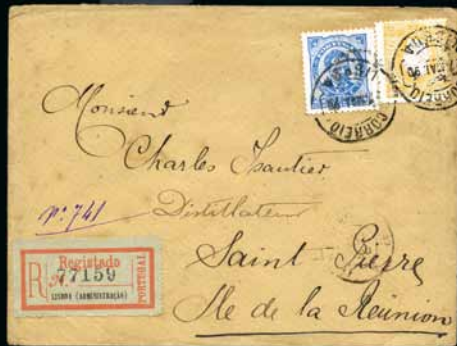 CORREIO
LISBOA
CORREIO
LISBOA
Monsieur
Charles Isautier
Distillateur
Nº 741
Saint Pierre
Ile de la Réunion
Registado
R Nº 77159
LISBOA (ADMINISTRAÇÃO)
PORTUGAL